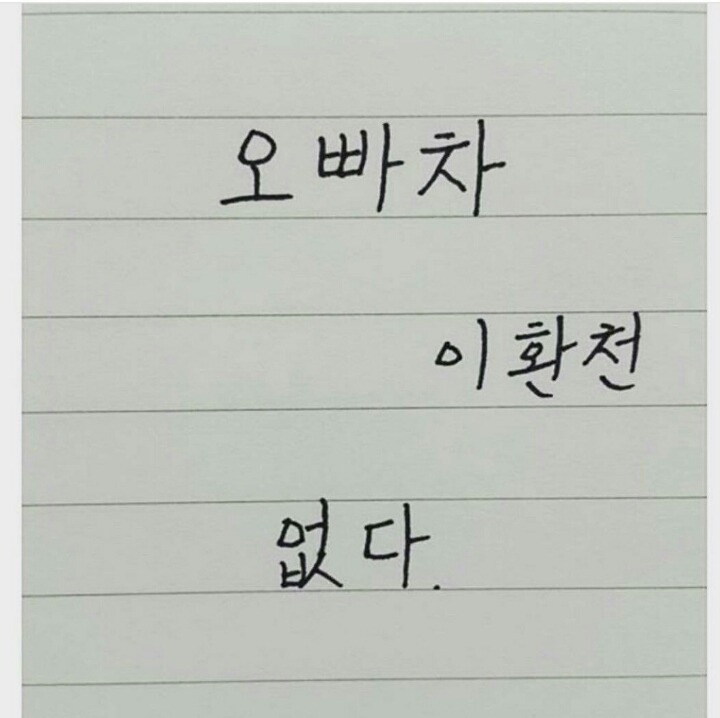 오빠차
이환천
없다.